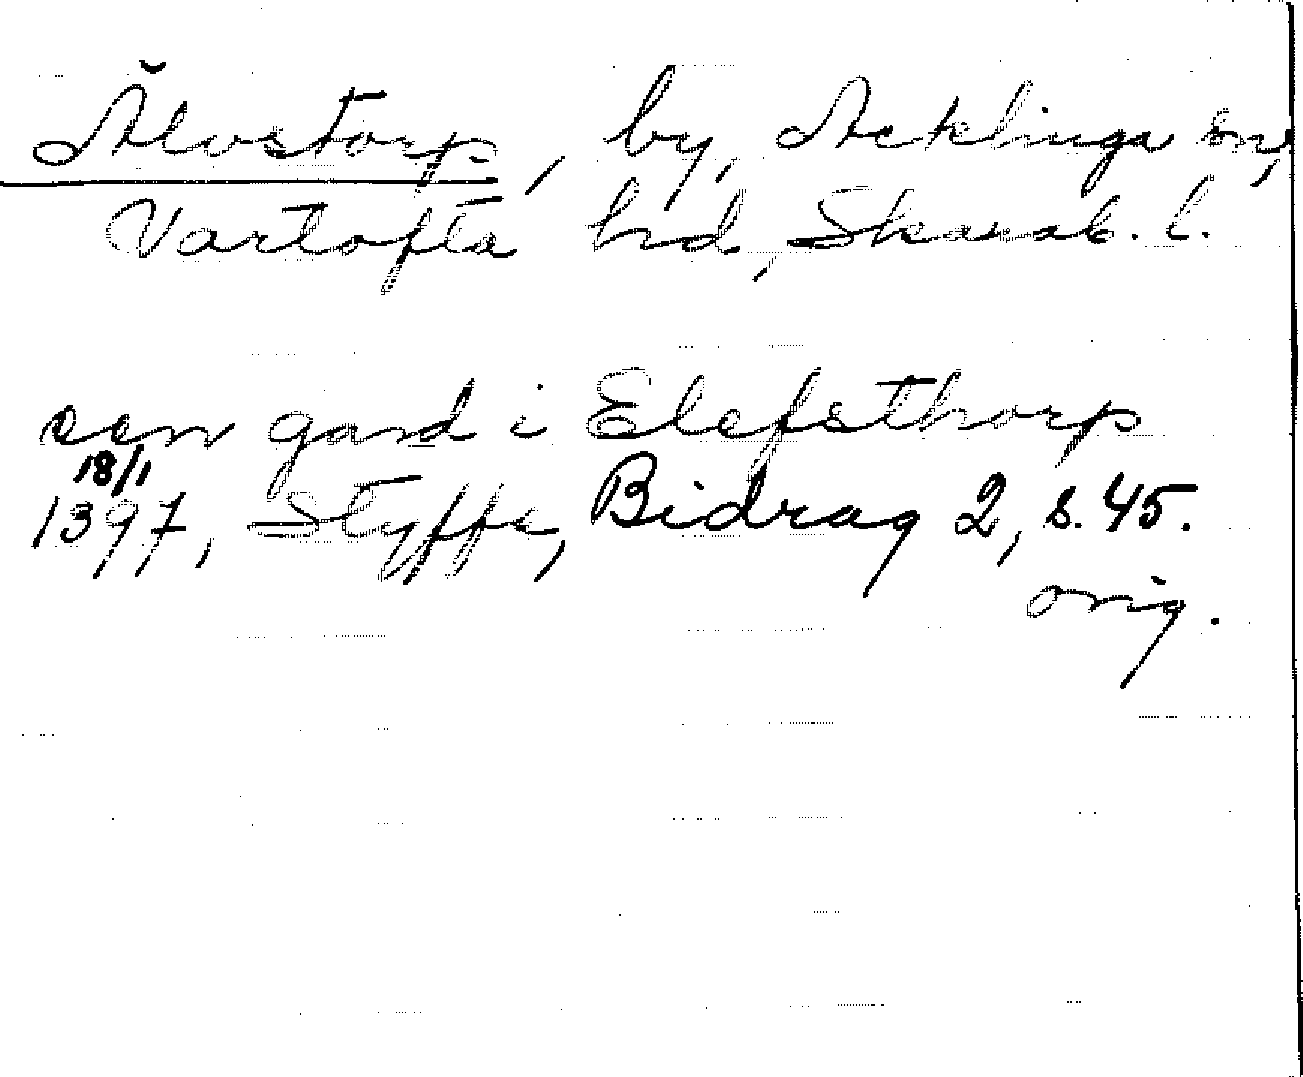 Älvstorp, by, Acklinga sn,
Vartofta hd, Skarab. l.
een gard i Elefsthorp
18/1
1397, Styffe, Bidrag 2, s. 45.
orig.